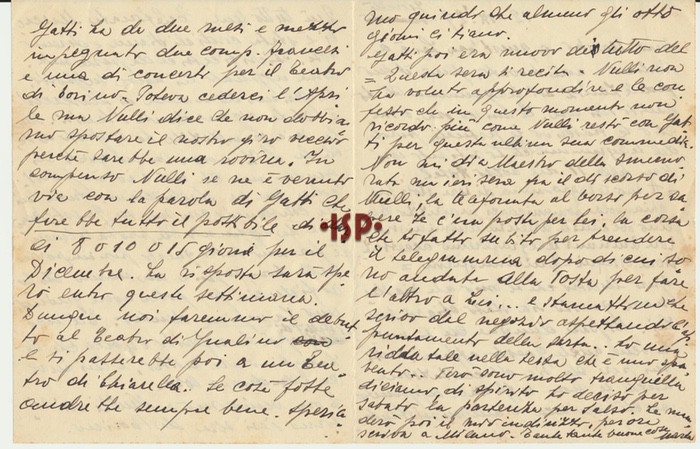 Gatti ha da due mesi e mezzo
impegnato due comp. francesi
e una di concerto per il Teatro
di Torino. Poteva cederci l'Apri
le ma Nulli dice de non dobbia
mo spostare il nostro giro
perché sarebbe una rovina. In
compenso Nulli se ne è venuto
via con la parola di Gatti che
farebbe tutto il possibile di
ci 8 o 10 o 15 giorni per il
Dicembre. La risposta sarà spe
ro entro questa settimana.
Dunque noi faremmo il debut
to al Teatro di Gualino
e ti passerebbe poi a un Tea
tro di Chiarella. Se così fosse
andrebbe sempre bene. Speria
mo quindi che almeno gli otto
giorni ci siano.
Gatti poi era nuovo di tutto del
= Questa sera si recita. Nulli non
ha voluto approfondire e le con
fesso che in questo momento non
ricordo più come Nulli restò con Gat
ti per questa ultima sua commedia.
Non mi dia Maestro della smemo
rata ma ieri sera fra il discorso di
Nulli, la telefonata al borso per sa
pere se c'era posta per lei, la corsa
che ho fatto subito per prendere
il telegramma dopo di cui so
no andata alla Posta per fare
l'altro a Lei... e stamattina che
scrivo dal negozio aspettando
puntamento della sarta.. ho una
tale nella testa che è uno spa
vento... Però sono molto tranquilla
diciamo di spirito. Ho deciso per
sabato la partenza per Salso. Le man
derò poi il mio indirizzo, per ora
scriva a Milano. Tante tante buone cose
Marta
·ISP·